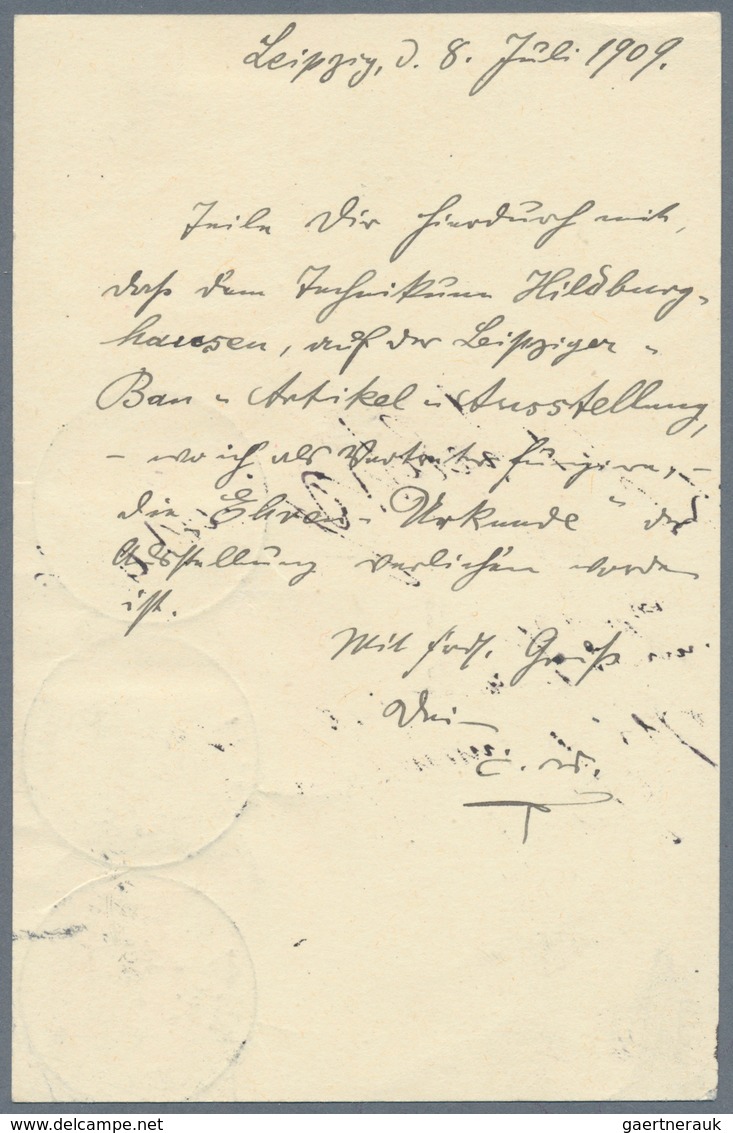 Leipzig, d. 8. Juli 1909.
Teile Dir hierdurch mit,
daß dem Technikum Hildburg-
hausen, auf der Leipziger-
Bau- Artikel- Ausstellung,
- wo ich als Vertreter fungire, -
die "Ehren- Urkunde" der
Ausstellung verliehen worden
ist.
Mit frdl. Gruß
Dein
delcampe.net
gaertnerauk